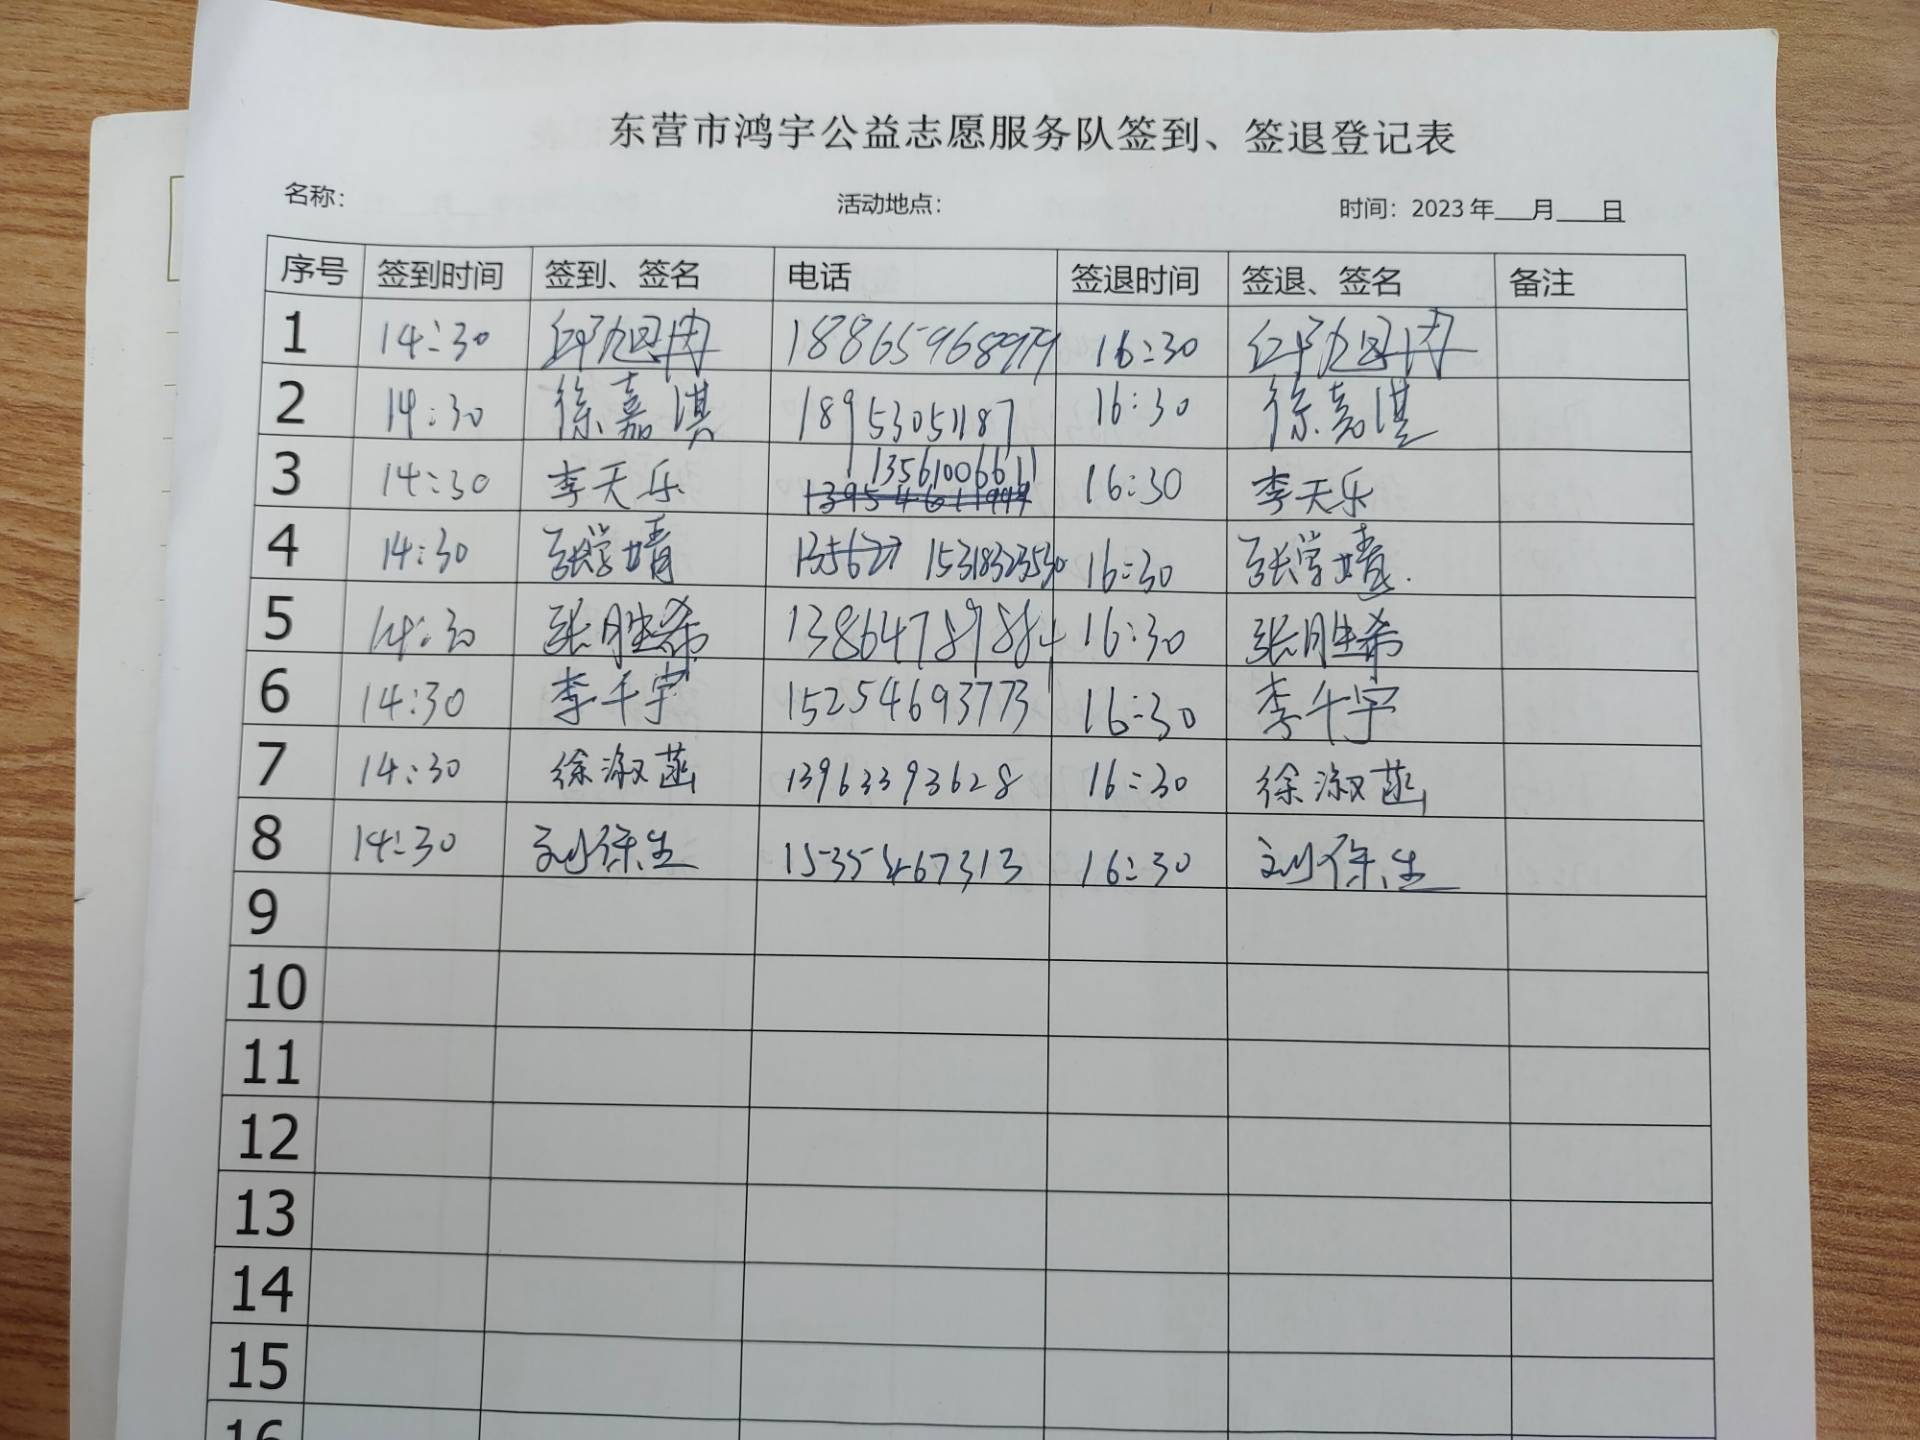 东营市鸿宇公益志愿服务队签到、签退登记表
名称： 活动地点： 时间：2023年___月___日
序号 签到时间 签到、签名 电话 签退时间 签退、签名 备注
1 14:30 16:30
2 14:30 徐嘉淇 18953051187 16:30 徐嘉淇
3 14:30 李天乐 13561006611 16:30 李天乐
4 14:30 张学婧 135627 15318323530 16:30 张学婧
5 14:30 张胜希 13864789884 16:30 张胜希
6 14:30 李千宇 15254693773 16:30 李千宇
7 14:30 徐淑菡 13963393628 16:30 徐淑菡
8 14:30 15354467313 16:30
9
10
11
12
13
14
15
16